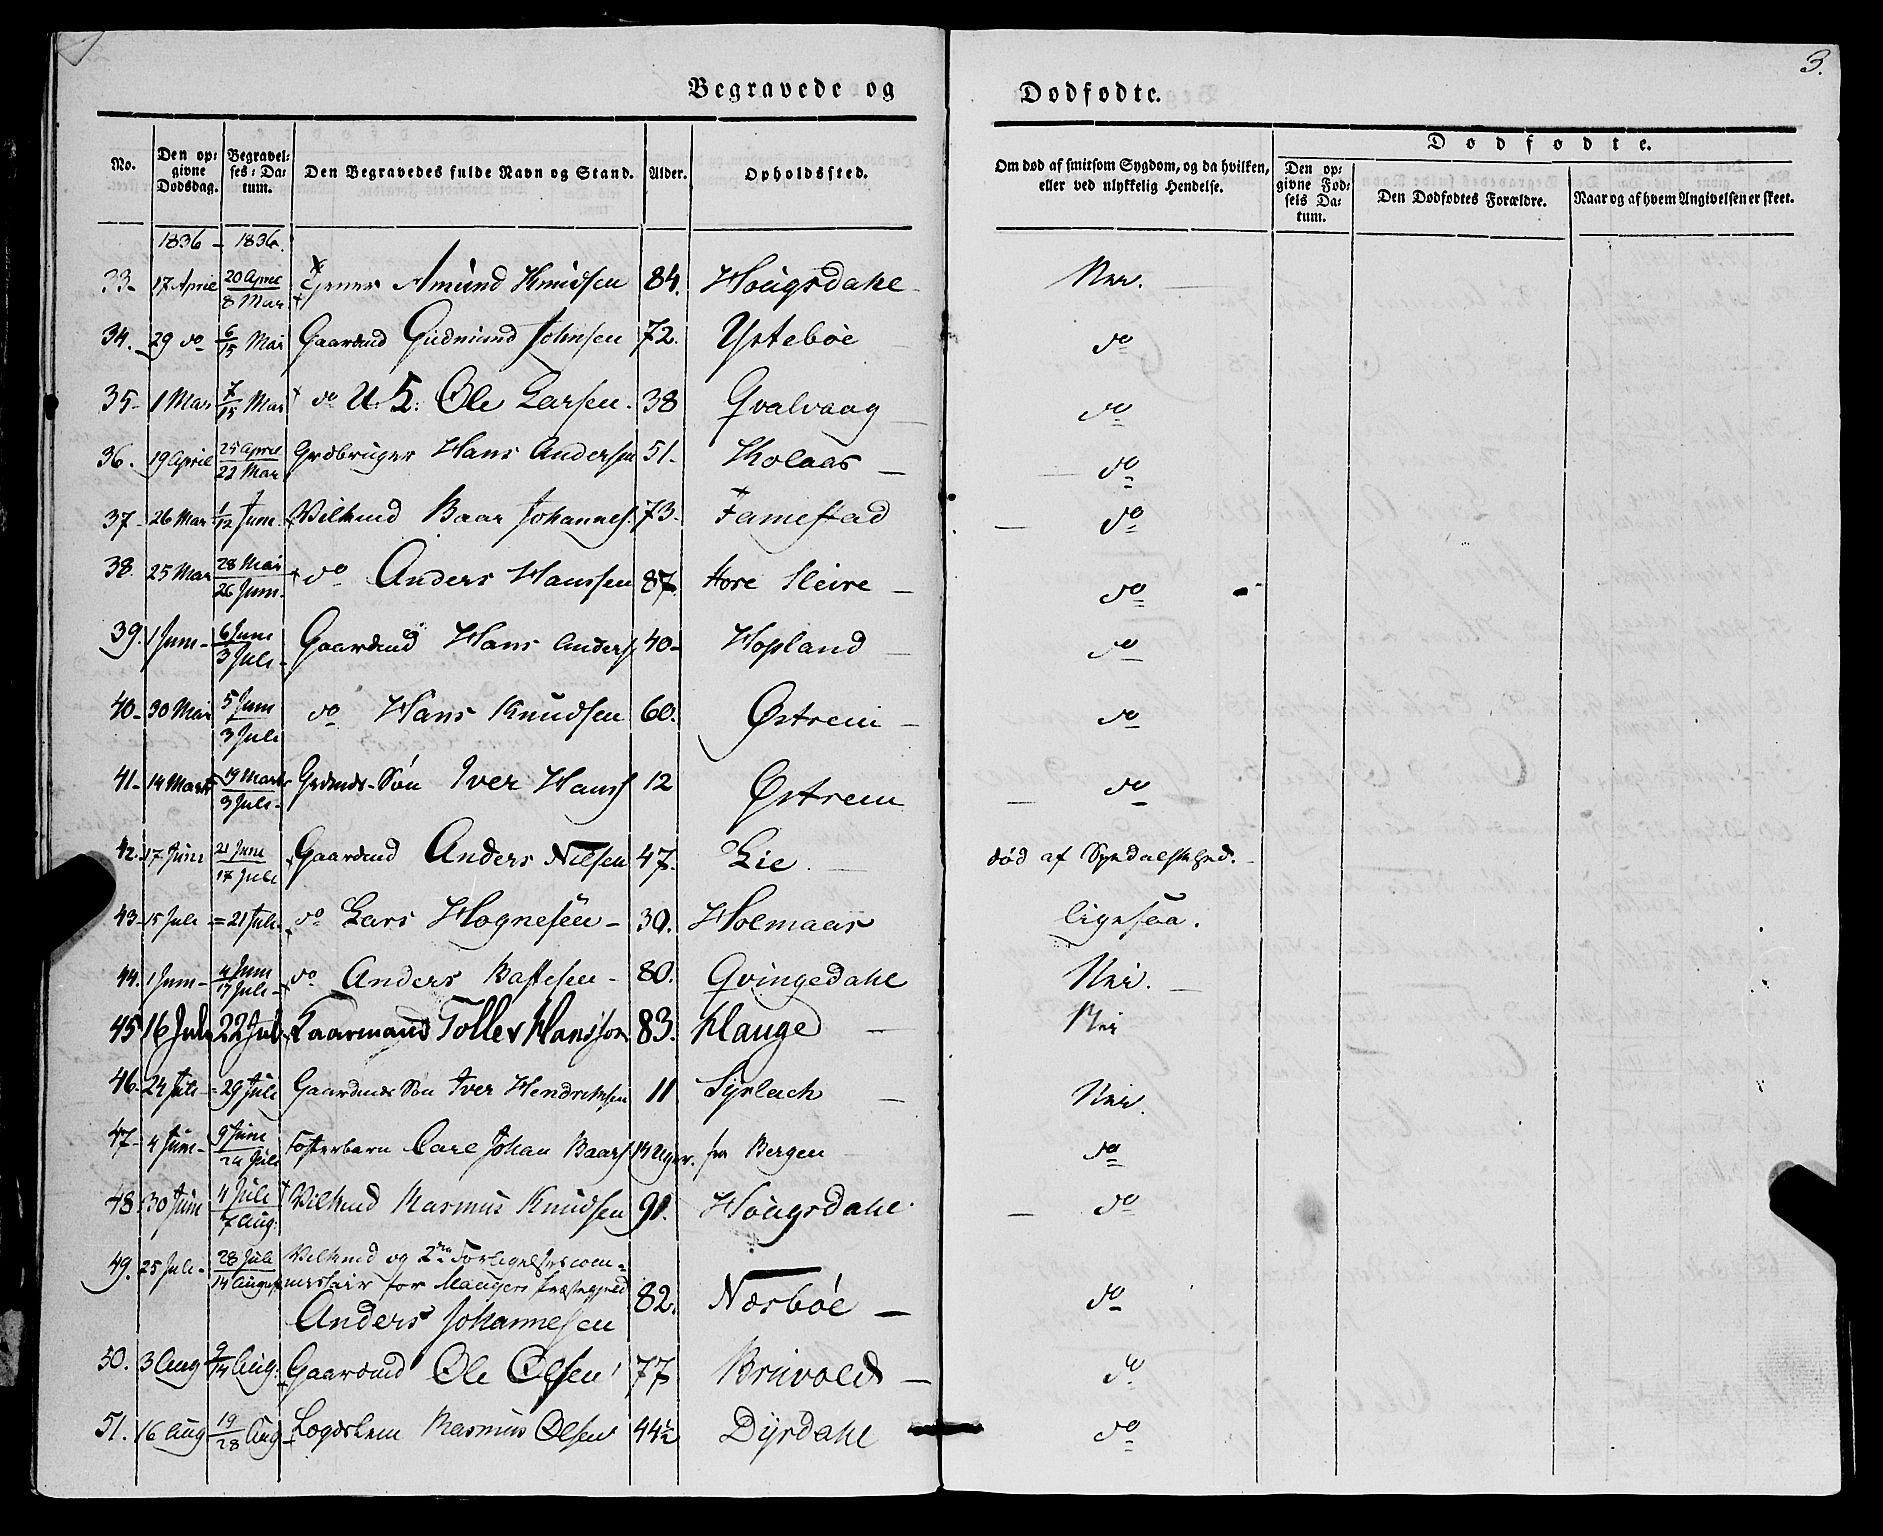 3.
Begravede og Dødfødte.
No. Den opgivne Dødsdag. Begravelses-Datum. Den Begravedes fulde Navn og Stand. Alder. Opholdssted. Om død af smitsom Sygdom, og da hvilken, eller ved ulykkelig Hendelse. Dødfødte. Den opgivne Fødsels Datum. Den Dødfødtes Forældre. Naar og af hvem Angivelsen er skeet.
1836 - 1836.
33- 17 April 20 April / 8 Mai Amund Knudsen 84. Hougsdahl Nei.
34. 29 do 6/15 Mai Gaardmd Gudmund Johnsen 72. Ystebøe do
35- 1 Mai 7/15 Mai do Ole Larsen. 38 Qvalvaag do
36. 19 April 25 April / 22 Mai Grdbruger Hans Andersen 51- do
37- 26 Mai 1/12 Juni Vilkmd Baar Johannes. 73- Famestad do
38. 25 Mai 28 Mai / 26 Juni do Anders Hanssen 87. do
39. 1 Juni 6 Juni / 3 Juli Gaardmd Hans Anders 40- Hopland do
40- 30 Mai 5 Juni / 3 Juli do Hans Knudsen 60. Østrem do
41- 14 Marts 19 Marts / 3 Juli Grdmds-Søn Iver Hans 12 Østrem do
42. 17 Juni 21 Juni / 17 Juli Gaardmd Anders Nilsen 47. Lie. død af Spedalskhed.
43- 15 Juli = 21 Juli do Lars Hognesen 30. Holmaas ligesaa.
44. 1 Juni 4 Juni / 17 Juli do Anders 80. Qvingedahl Nei.
45 16 Juli 22 Juli Gaarmand Tollev Hansson 83. Hauge Nei
46. 24 Juli = 29 Juli Gaardmds Søn Iver Hendriksen 11 Nei.
47- 4 Juni 9 Juni / 24 Juli Fosterbarn Carl Johan Baars Uger. fra Bergen do
48. 30 Juni 4 Juli / 7 Aug: Vilkmd Rasmus Knudsen 91. Hougsdahl. do
49. 25 Juli 28 Juli / 14 August Vilkmd og 2den Forligelsescom=
missair for Mangers Præstegjeld
Anders Johannesen 82. Næsbøe do
50. 3 Aug 9/14 Aug: Gaardmd Ole Olsen 77 Bruvold do
51. 16 Aug 19/28 Aug Rasmus Olsen 44½ Dyrdahl do